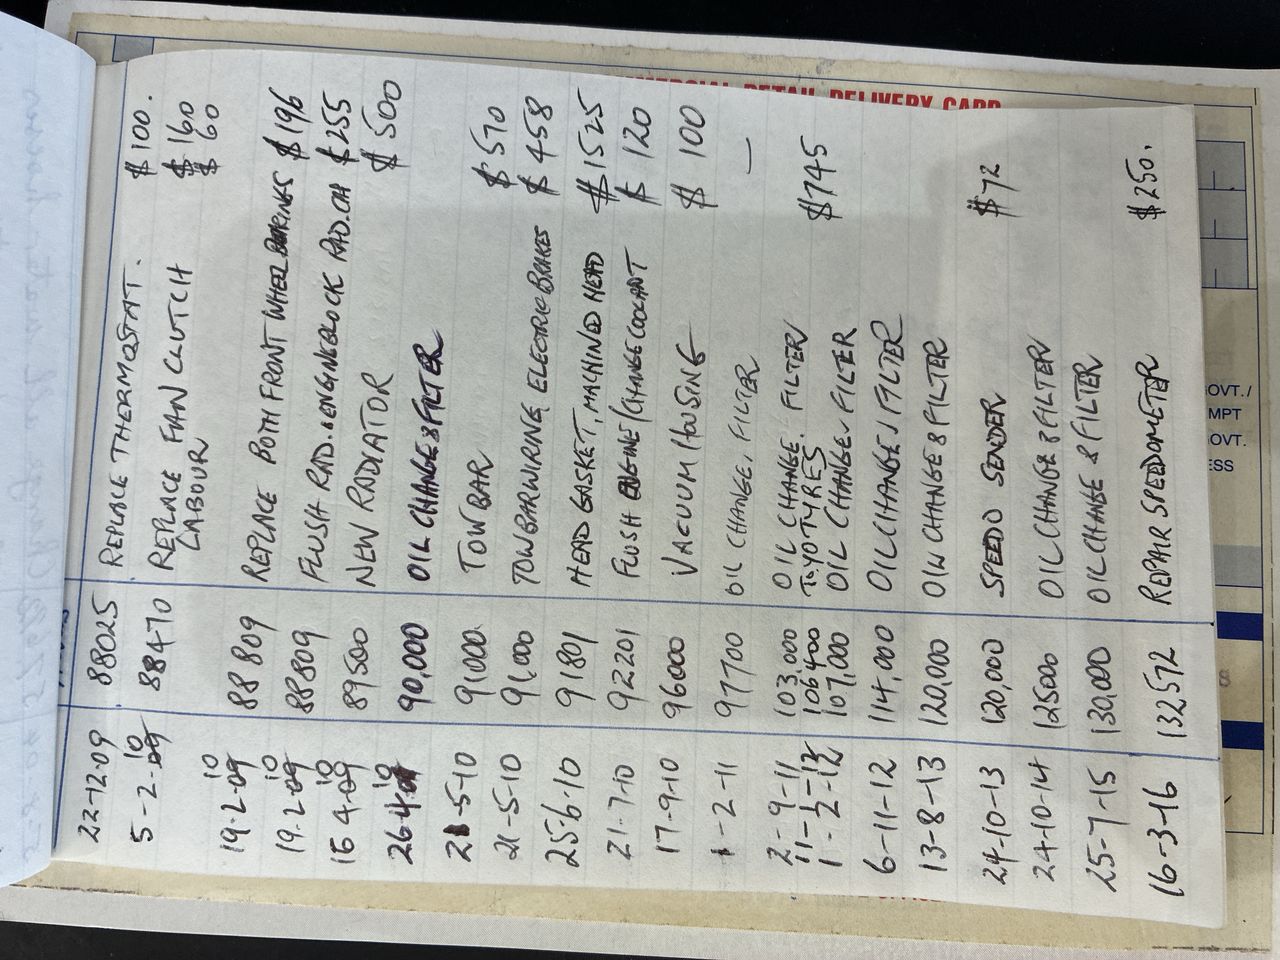 22-12-09 88025 REPLACE THERMOSTAT. $100.
5-2-10 88470 REPLACE FAN CLUTCH $160
LABOUR $60
19-2-10 88809 REPLACE BOTH FRONT WHEEL BEARINGS $196
19-2-10 88809 FLUSH RAD. & ENGINE BLOCK RAD. $255
16-4-10 89500 NEW RADIATOR $500
26-4-10 90,000 OIL CHANGE & FILTER
21-5-10 91,000 TOW BAR $570
21-5-10 91,000 TOWBAR WIRING, ELECTRIC BRAKES $458
25-6-10 91801 HEAD GASKET, MACHINED HEAD $1525
21-7-10 92201 FLUSH ENGINE/CHANGE COOLANT $120
17-9-10 96000 VACUUM HOUSING $100
1-2-11 97700 OIL CHANGE, FILTER —
2-9-11 103,000 OIL CHANGE. FILTER
11-1-12 106400 TOYO TYRES. $745
1-2-12 107,000 OIL CHANGE, FILTER
6-11-12 114,000 OIL CHANGE, FILTER
13-8-13 120,000 OIW CHANGE & FILTER
24-10-13 120,000 SPEEDO SENDER $72
24-10-14 125000 OIL CHANGE & FILTER
25-7-15 130,000 OIL CHANGE & FILTER
16-3-16 132572 REPAIR SPEEDOMETER $250.
RETAIL DELIVERY CARD
OVT./
MPT
OVT.
ESS